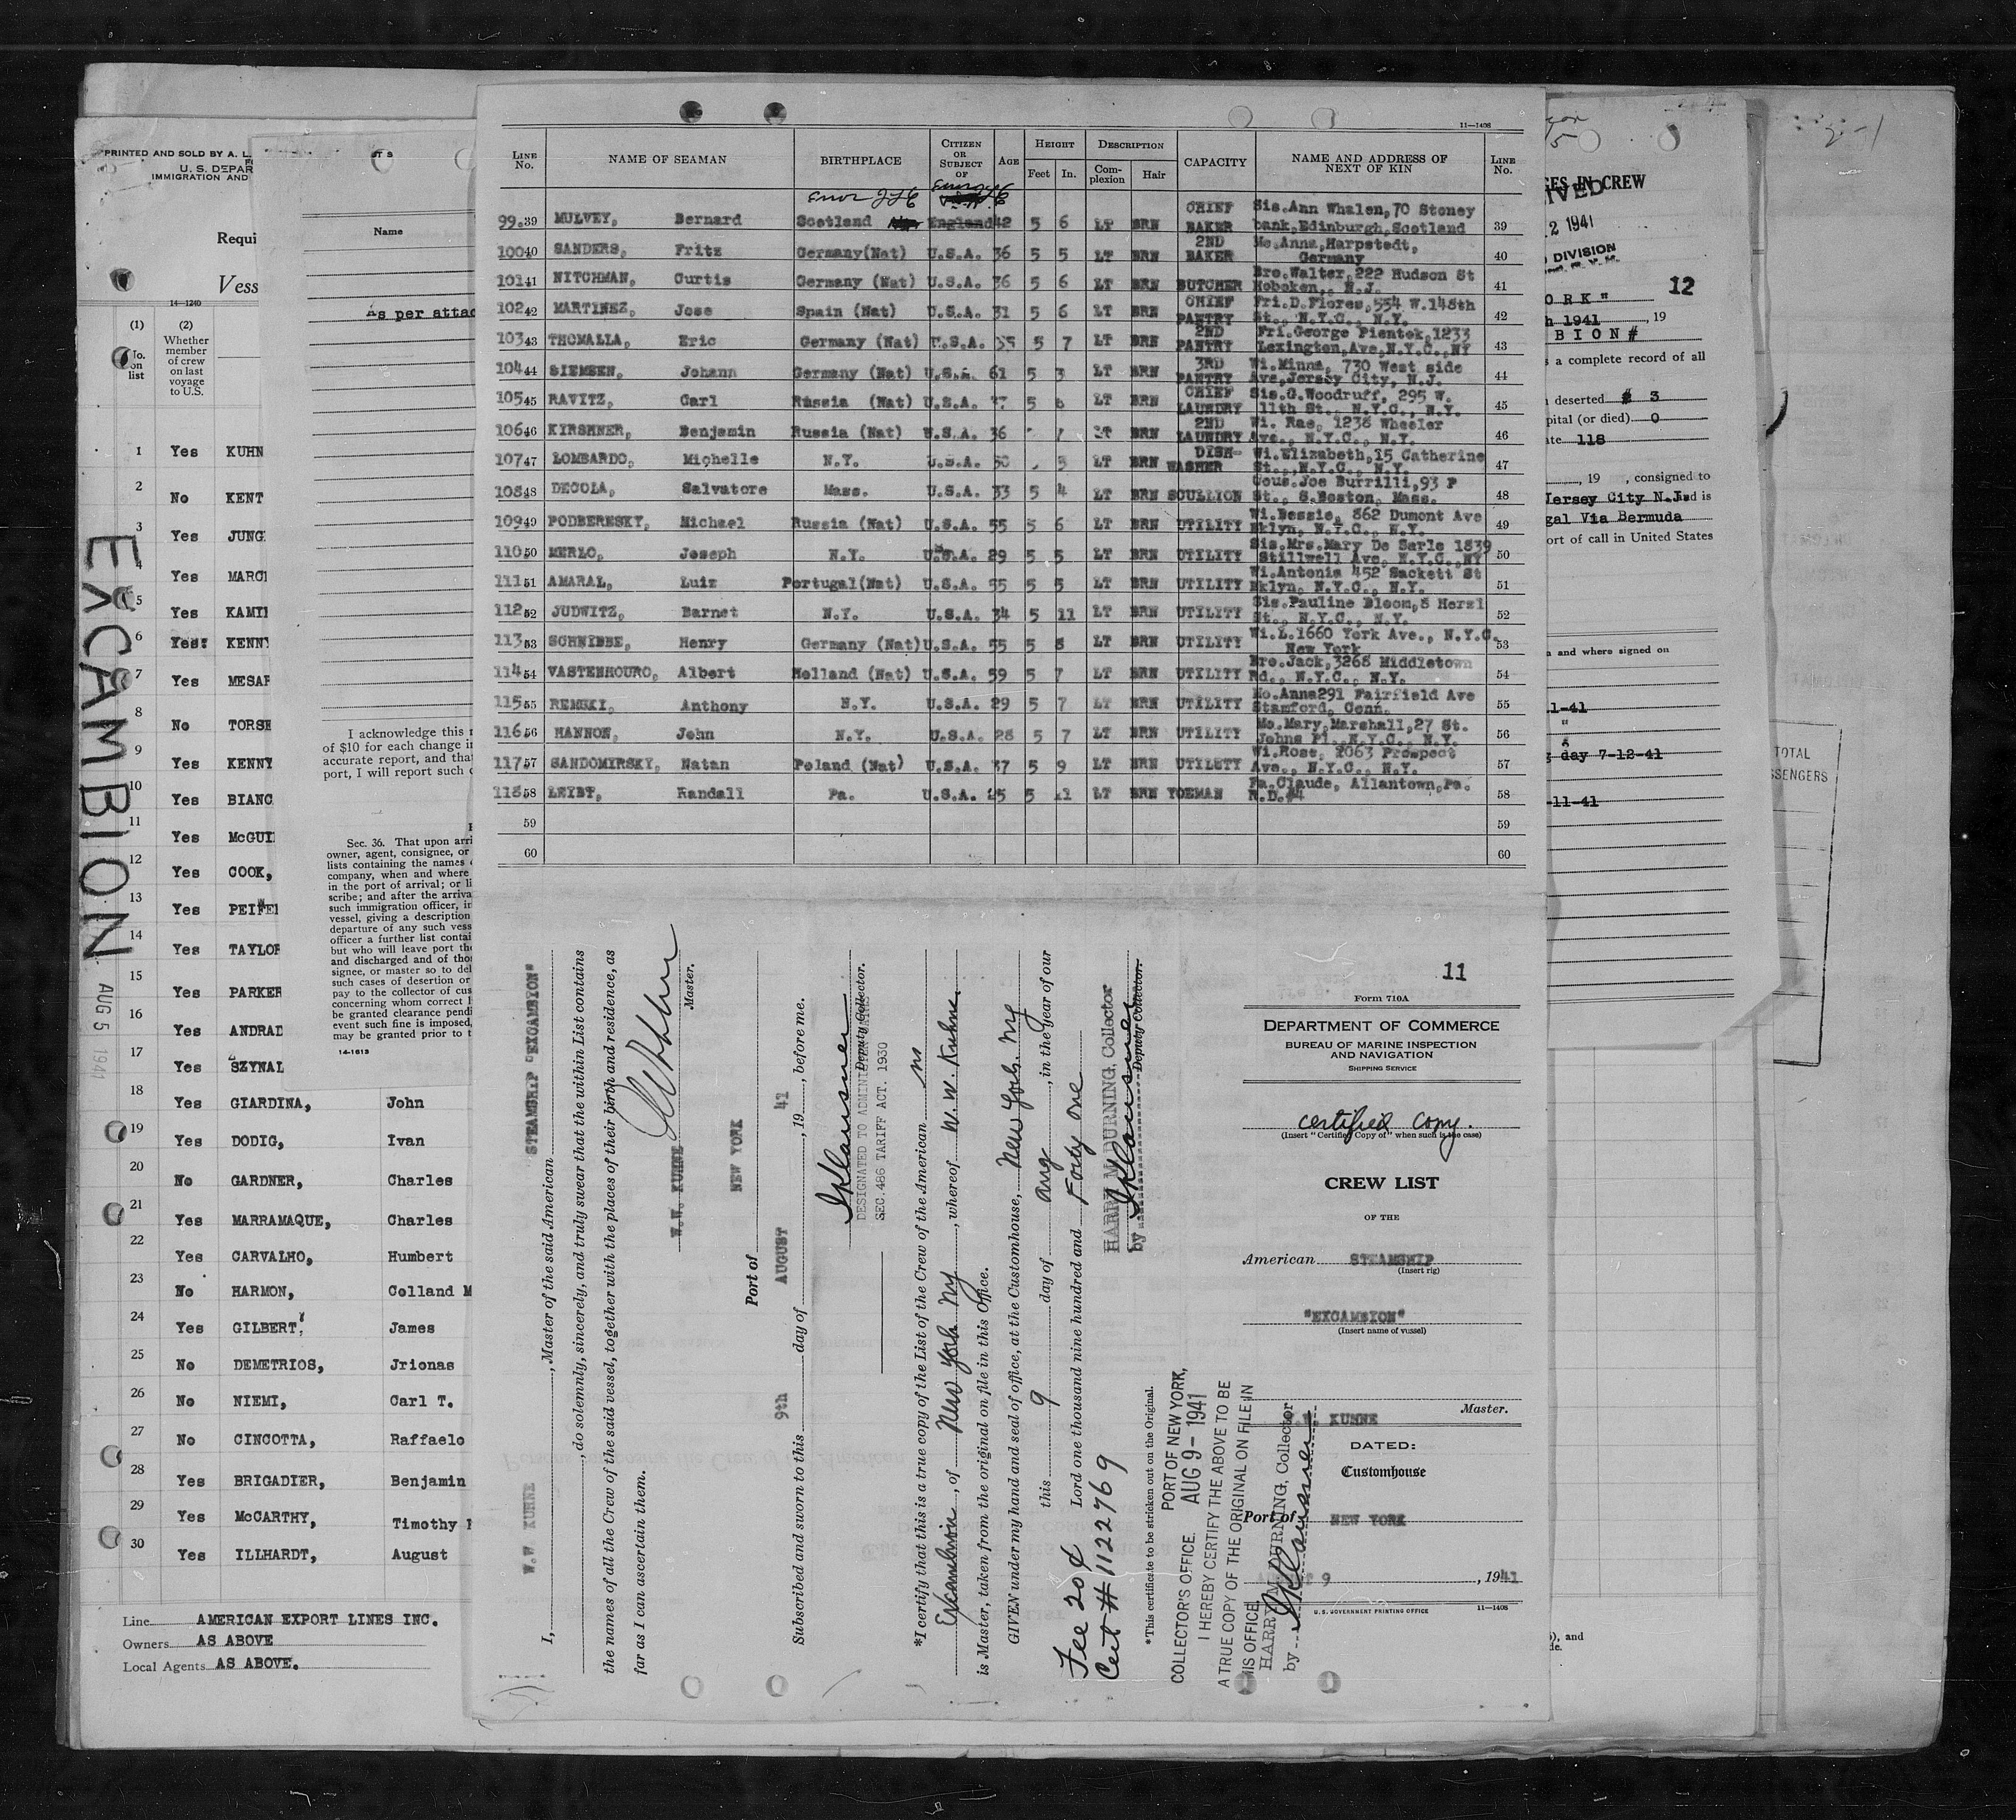 PRINTED AND SOLD BY A. L.
U. S. DEPAR
IMMIGRATION AND
Requi
Vess
14—1240
(1)
No.
on
list
(2)
Whether
member
of crew
on last
voyage
to U.S.
1 Yes KUHN
2 No KENT
3 Yes JUNG
4 Yes MARC
5 Yes KAMI
6 Yes KENN
7 Yes MESAR
8 No TORSE
9 Yes KENNY
10 Yes BIANC
11 Yes McGUI
12 Yes COOK,
13 Yes PEIFE
14 Yes TAYLOR
15 Yes PARKER
16 Yes ANDRAD
17 Yes SZYNAL
18 Yes GIARDINA, John
19 Yes DODIG, Ivan
20 No GARDNER, Charles
21 Yes MARRAMAQUE, Charles
22 Yes CARVALHO, Humbert
23 No HARMON, Colland M
24 Yes GILBERT, James
25 No DEMETRIOS, Jrionas
26 No NIEMI, Carl T.
27 No CINCOTTA, Raffaelo
28 Yes BRIGADIER, Benjamin
29 Yes McCARTHY, Timothy
30 Yes ILLHARDT, August
Line AMERICAN EXPORT LINES INC.
Owners AS ABOVE
Local Agents AS ABOVE.
EXCAMBION
AUG 5 1941
Name
As per attac
I acknowledge this
of $10 for each change in
accurate report, and that
port, I will report such c
Sec. 36. That upon arri
owner, agent, consignee, or
lists containing the names
company, when and where
in the port of arrival; or li
scribe; and after the arriva
such immigration officer, in
vessel, giving a description
departure of any such vess
officer a further list contai
but who will leave port the
and discharged and of tho
signee, or master so to del
such cases of desertion or
pay to the collector of cus
concerning whom correct l
be granted clearance pendi
event such fine is imposed,
may be granted prior to t
14-1613
11—1408
LINE No. NAME OF SEAMAN BIRTHPLACE CITIZEN OR SUBJECT OF AGE HEIGHT Feet In. DESCRIPTION Complexion Hair CAPACITY NAME AND ADDRESS OF NEXT OF KIN LINE No.
99.39 MULVEY, Bernard Scotland England 42 5 6 LT BRN CHIEF BAKER Sis.Ann Whalen,70 Stoney bank,Edinburgh,Scotland 39
10040 SANDERS, Fritz Germany(Nat) U.S.A. 36 5 5 LT BRN 2ND BAKER Mo.Anna,Harpstedt, Germany 40
10141 NITCHMAN, Curtis Germany (Nat) U.S.A. 36 5 6 LT BRN BUTCHER Bro.Walter,222 Hudson St Hoboken, N.J. 41
10242 MARTINEZ, Jose Spain (Nat) U.S.A. 31 5 6 LT BRN CHIEF PANTRY Fri.D.Flores,554 W.148th St., N.Y.C., N.Y. 42
10343 THOMALLA, Eric Germany (Nat) U.S.A. 35 5 7 LT BRN 2ND PANTRY Fri.George Pientek,1233 Lexington,Ave,N.Y.C.,NY 43
10444 SIEMSEN, Johann Germany (Nat) U.S.A. 61 5 3 LT BRN 3RD PANTRY Wi.Minna, 730 West side Ave,Jersey City, N.J. 44
10545 RAVITZ, Carl Russia (Nat) U.S.A. 5 LT BRN CHIEF LAUNDRY Sis.G.Woodruff, 295 W. 11th St., N.Y.C., N.Y. 45
10646 KIRSHNER, Benjamin Russia (Nat) U.S.A. 36 LT BRN 2ND LAUNDRY Wi. Rae, 1238 Wheeler Ave., N.Y.C., N.Y. 46
10747 LOMBARDO, Michelle N.Y. U.S.A. 50 5 LT BRN DISH-WASHER Wi.Elizabeth,15 Catherine St.,N.Y.C., N.Y. 47
10848 DECOLA, Salvatore Mass. U.S.A. 33 5 4 LT BRN SCULLION Cous.Joe Burrilli,93 P St., S.Boston, Mass. 48
10949 PODBERESKY, Michael Russia (Nat) U.S.A. 55 5 6 LT BRN UTILITY Wi.Bessie, 862 Dumont Ave Bklyn, N.Y.C., N.Y. 49
11050 MERLO, Joseph N.Y. U.S.A. 29 5 5 LT BRN UTILITY Sis.Mrs.Mary De Sarle 1839 Stillwell Ave, N.Y.C.,NY 50
11151 AMARAL, Luiz Portugal(Nat) U.S.A. 55 5 5 LT BRN UTILITY Wi.Antonia 452 Sackett St Bklyn, N.Y.C., N.Y. 51
11252 JUDWITZ, Barnet N.Y. U.S.A. 34 5 11 LT BRN UTILITY Sis.Pauline Bloom,8 Herzl St., N.Y.C., N.Y. 52
11353 SCHNIBBE, Henry Germany (Nat) U.S.A. 55 5 8 LT BRN UTILITY Wi.L.1660 York Ave., N.Y.C. New York 53
11454 VASTENHOURO, Albert Holland (Nat) U.S.A. 59 5 7 LT BRN UTILITY Bro.Jack,3268 Middletown Rd., N.Y.C., N.Y. 54
11555 REMSKI, Anthony N.Y. U.S.A. 29 5 7 LT BRN UTILITY Mo.Anna291 Fairfield Ave Stamford, Conn. 55
11656 HANNON, John N.Y. U.S.A. 28 5 7 LT BRN UTILITY Mo.Mary,Marshall,27 St. Johns Pl., N.Y.C., N.Y. 56
11757 SANDOMIRSKY, Natan Poland (Nat) U.S.A. 37 5 9 LT BRN UTILITY Wi.Rose, 2063 Prospect Ave., N.Y.C., N.Y. 57
11858 LEIBT, Randall Pa. U.S.A. 25 5 11 LT BRN YOEMAN Fa.Claude, Allantown,Pa. R.D.#4 58
59 59
60 60
I, W.W KUHNE, Master of the said American STEAMSHIP "EXCAMBION"
, do solemnly, sincerely, and truly swear that the within List contains
the names of all the Crew of the said vessel, together with the places of their birth and residence, as
far as I can ascertain them.
W.W. KUHNE
Master.
Port of NEW YORK
Subscribed and sworn to this 9th day of AUGUST, 19 41, before me.
Deputy Collector.
DESIGNATED TO ADMINISTER OATHS
SEC.486 TARIFF ACT. 1930
*I certify that this is a true copy of the List of the Crew of the American ss
Excambion, of New York NY, whereof W. W. Kuhne.
is Master, taken from the original on file in this Office.
GIVEN under my hand and seal of office, at the Customhouse, New York. NY
this 9 day of Aug, in the year of our
Lord one thousand nine hundred and Forty One
HARRY M. DURNING, Collector
by
Deputy Collector.
Fee 20¢
Cert # 1122769
*This certificate to be stricken out on the Original.
COLLECTOR'S OFFICE. PORT OF NEW YORK,
AUG 9 - 1941
I HEREBY CERTIFY THE ABOVE TO BE
A TRUE COPY OF THE ORIGINAL ON FILE IN
THIS OFFICE
HARRY M. DURNING, Collector
by
11
Form 710A
DEPARTMENT OF COMMERCE
BUREAU OF MARINE INSPECTION
AND NAVIGATION
SHIPPING SERVICE
certified copy.
(Insert "Certified Copy of" when such is the case)
CREW LIST
OF THE
American STEAMSHIP
(Insert rig)
"EXCAMBION"
(Insert name of vessel)
W.W. KUHNE
Master.
DATED:
Customhouse
Port of NEW YORK
9, 1941
U.S. GOVERNMENT PRINTING OFFICE 11—1408
GES IN CREW
IVED
2 1941
DIVISION
ORK" 12
h 1941, 19
BION#
s a complete record of all
deserted # 3
pital (or died) 0
ate 118
, 19 , consigned to
Jersey City N.J. d is
gal Via Bermuda
ort of call in United States
a and where signed on
1-41
"
g day 7-12-41
-11-41
TOTAL
SSENGERS
2-1
), and